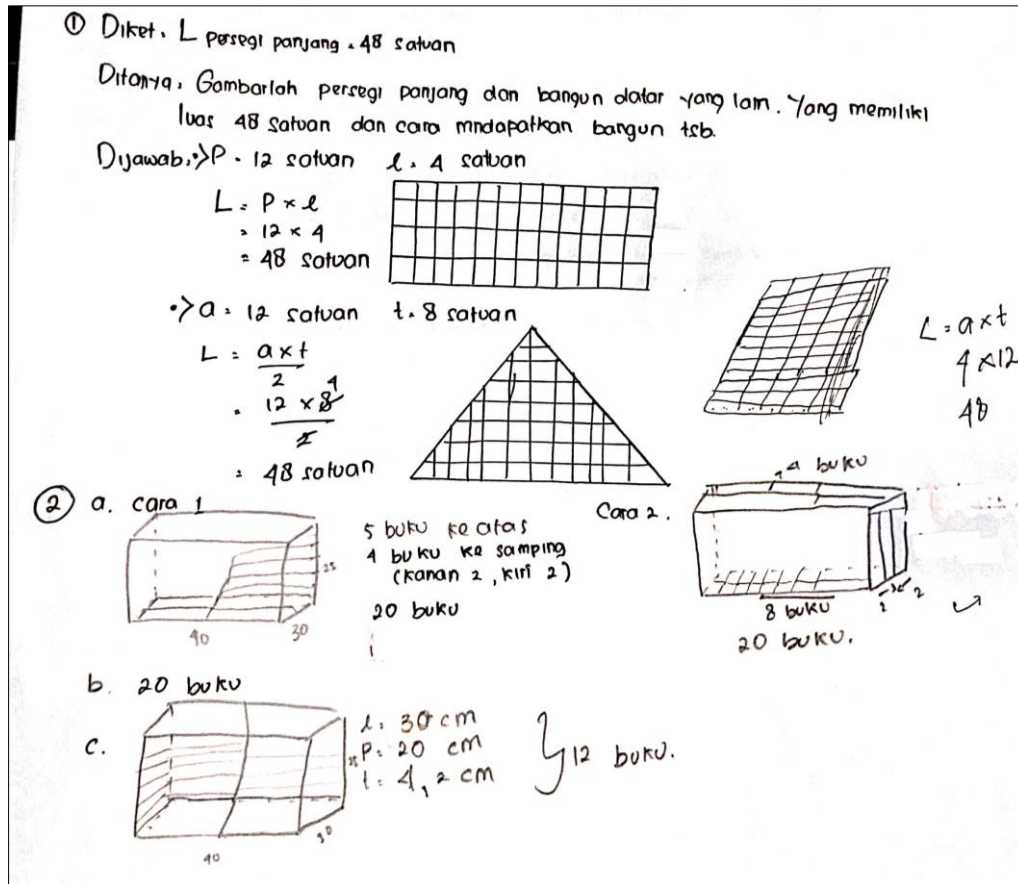 ① Diket. L persegi panjang = 48 satuan
Ditanya: Gambarlah persegi panjang dan bangun datar yang lain. Yang memiliki
luas 48 satuan dan cara mndapatkan bangun tsb.
Dijawab: •> P = 12 satuan l = 4 satuan
L = P × l
= 12 × 4
= 48 satuan
•> a = 12 satuan t = 8 satuan
L = a×t
2
= 12 × 8 4
2
= 48 satuan
L = a×t
4 × 12
48
② a. cara 1
25
40 30
5 buku ke atas
4 buku ke samping
(kanan 2, kiri 2)
20 buku
Cara 2.
4 buku
8 buku
2
20 buku.
b. 20 buku
c.
25
40
30
l = 30 cm
P = 20 cm
t = 4,2 cm
12 buku.